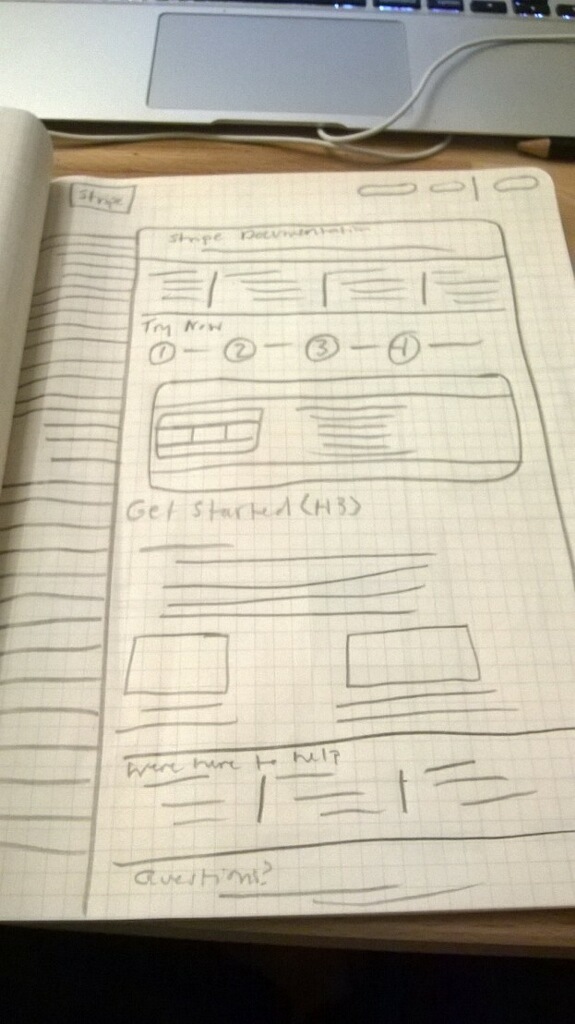 Stripe
Stripe Documentation
Try Now
1 2 3 4
Get Started (H3)
We're here to help
Questions?